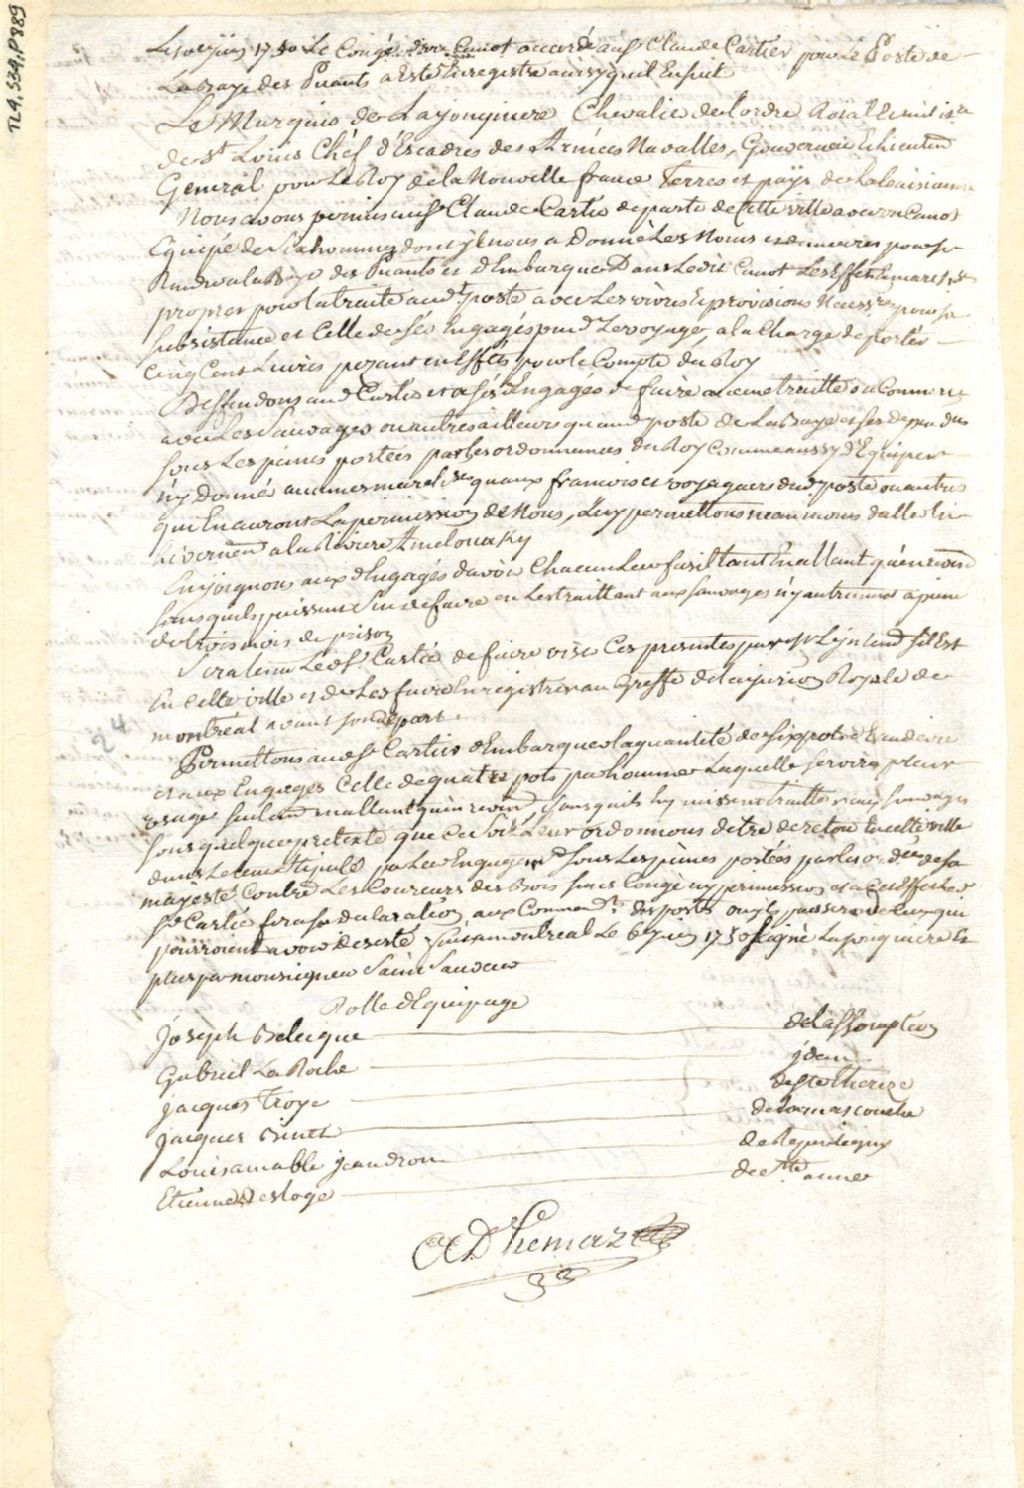 TL4,S34,P889
juin 1750 Le Congé d'un Canot accordé au Sr Claude Cartier pour Le Poste de
La Baye des Puants a Esté Enregistré ainsy quil Ensuit
Le Marquis de Lajonquiere Chevalier de Lordre Roial Et milit.re
de St Loüis Chéf d'Escadres des Armées Navalles, Gouverneur Et Lieutent
General pour Le Roy de la Nouvelle france Terres et païs de la Loüisianne
Nous avons permis au Sr Claude Cartier de partir de Cette ville avec un Canot
Equipé de Six hommes dont il nous a Donné Les Noms et demeures pour se
Rendre a la Baye des Puants et d'Embarquer Dans Ledit Canot Les Effets Et march.ses
propres pour la traite aud. poste avec Les vivres Et provisions Necess.res pour sa
subsistance et Celle de ses Engagés pend.t Le voyage, a la Charge de porter
Cinq Cent Livres pezant en Effets pour le Compte du Roy
Deffendons aud Cartier et a ses Engagés de faire aucune traitte ou Commerce
avec Les Sauvages ou autres ailleurs quaud poste de La Baye et ses dependces
sous Les peines portées par les ordonnances du Roy Comme aussy d'Equiper
n'y Donné aucunes march.ses quaux francois et voyageurs dud. poste ou autres
qui En auront La permission de Nous, Leur permettons neanmoins daller En
hivernem.t a la Riviere
Enjoignons aux d. Engagés d'avoir Chacun Leur fusil tant En allant quen reven.t
sans quils puissent S'en defaire en Les traittant aux Sauvages n'y autrement a peine
de trois mois de prison
Sera tenu Led Sr Cartié de faire viser Ces presentes par Mr Lyntend. s'il Est
En Cette ville et de Les faire Enregistrer au Greffe de la jurion Royale de
montreal avant son départ
24
Permettons aud Sr Cartier d'Embarquer la quantité de six pots d'Eau de vie
et aux Engagés Celle de quatre pots par homme Laquelle servira pr leur
usage seulemt En allant quen reven.t, sans quils En puissent traitter aux Sauvages
sous quelque pretexte que Ce soit Leur ordonnons d'Etre de retour En Cette ville
dans Le tems stipulé par Leur Engagemt sous Les peines portées par les ord.ces de sa
majesté Contre Les Coureurs des Bois sans Congé ny permission et a Cet Effet Led
Sr Cartié fera sa declaration aux Command.ts des postes ou ils passera de Ceux qui
pourroient avoir deserté, fait a montreal Le 6 juin 1750 signé Lajonquiere Et
plus bas par monseigneur Saint Sauveur
Rolle d'Equipage
Joseph Belecque de Lassomption
Gabriel La Roche jdem
Jacques Troye de Ste Thereze
Jacques Binet de Lamascouche
Loüis amable jeandron de Repentigny
Etienne Desloge de Ste anne
Adhemar